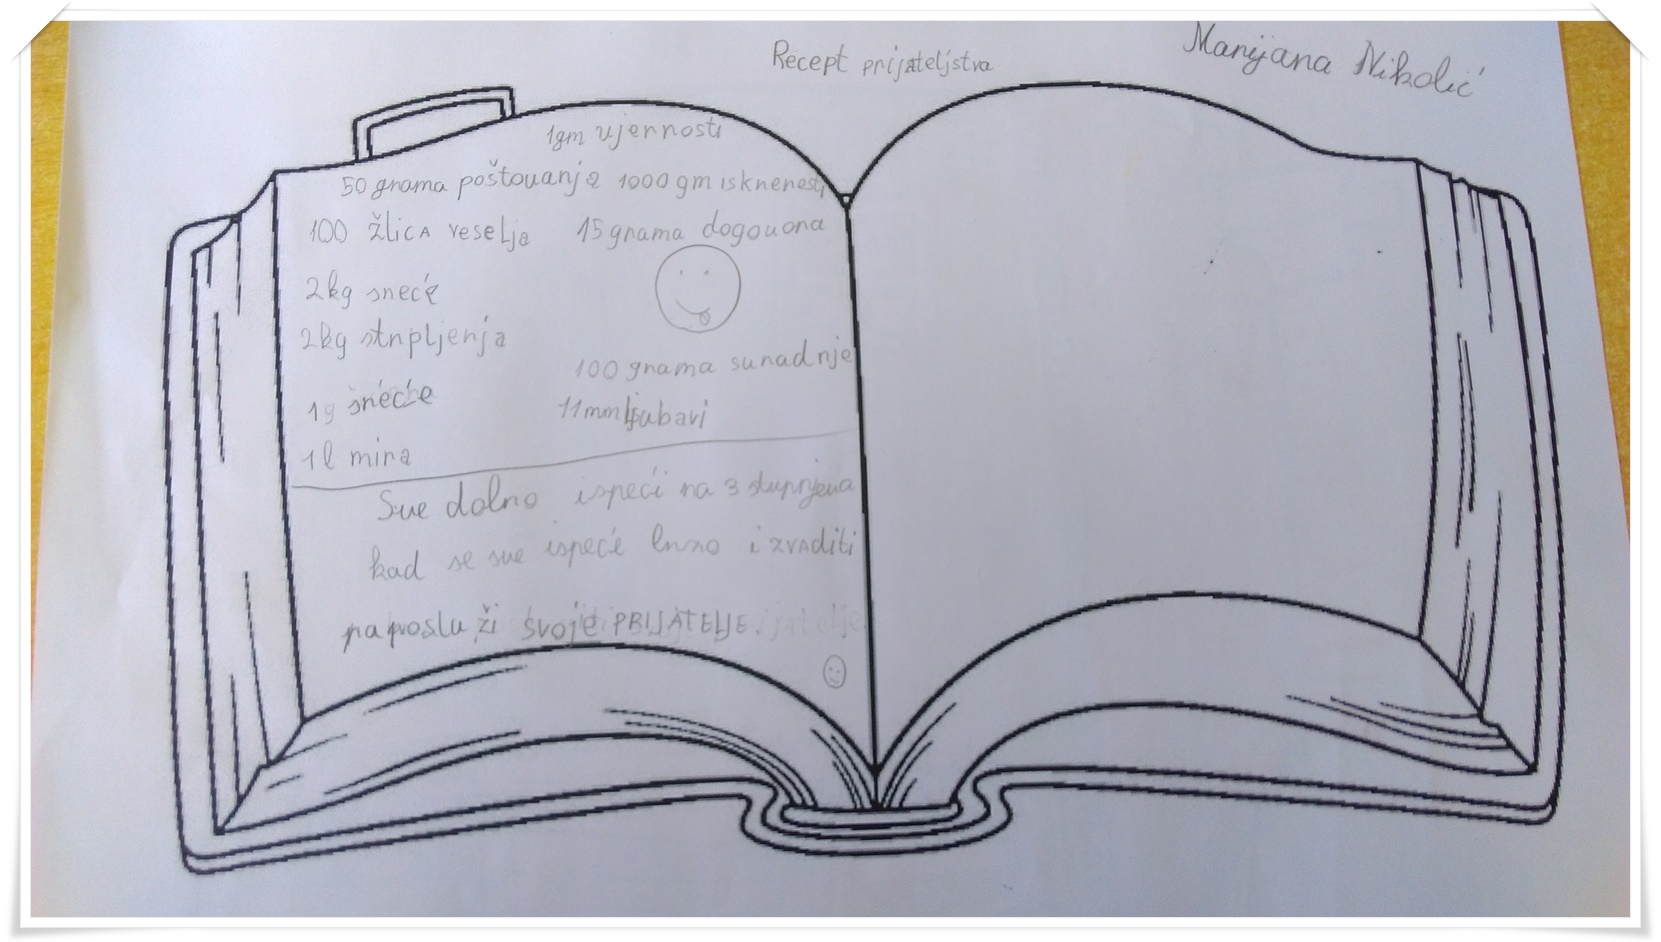 Recept prijateljstva
Marijana Nikolić
1gm vjernosti
50 grama poštovanja 1000 gm iskrenosti
100 žlica veselja 15 grama dogovora
2kg sreće
2kg strpljenja
100 grama suradnje
1g sreće
11mm ljubavi
1l mira
Sve dobro ispeći na 3 stupnjeva
kad se sve ispeće brzo izvaditi
pa posluži svoje PRIJATELJE.